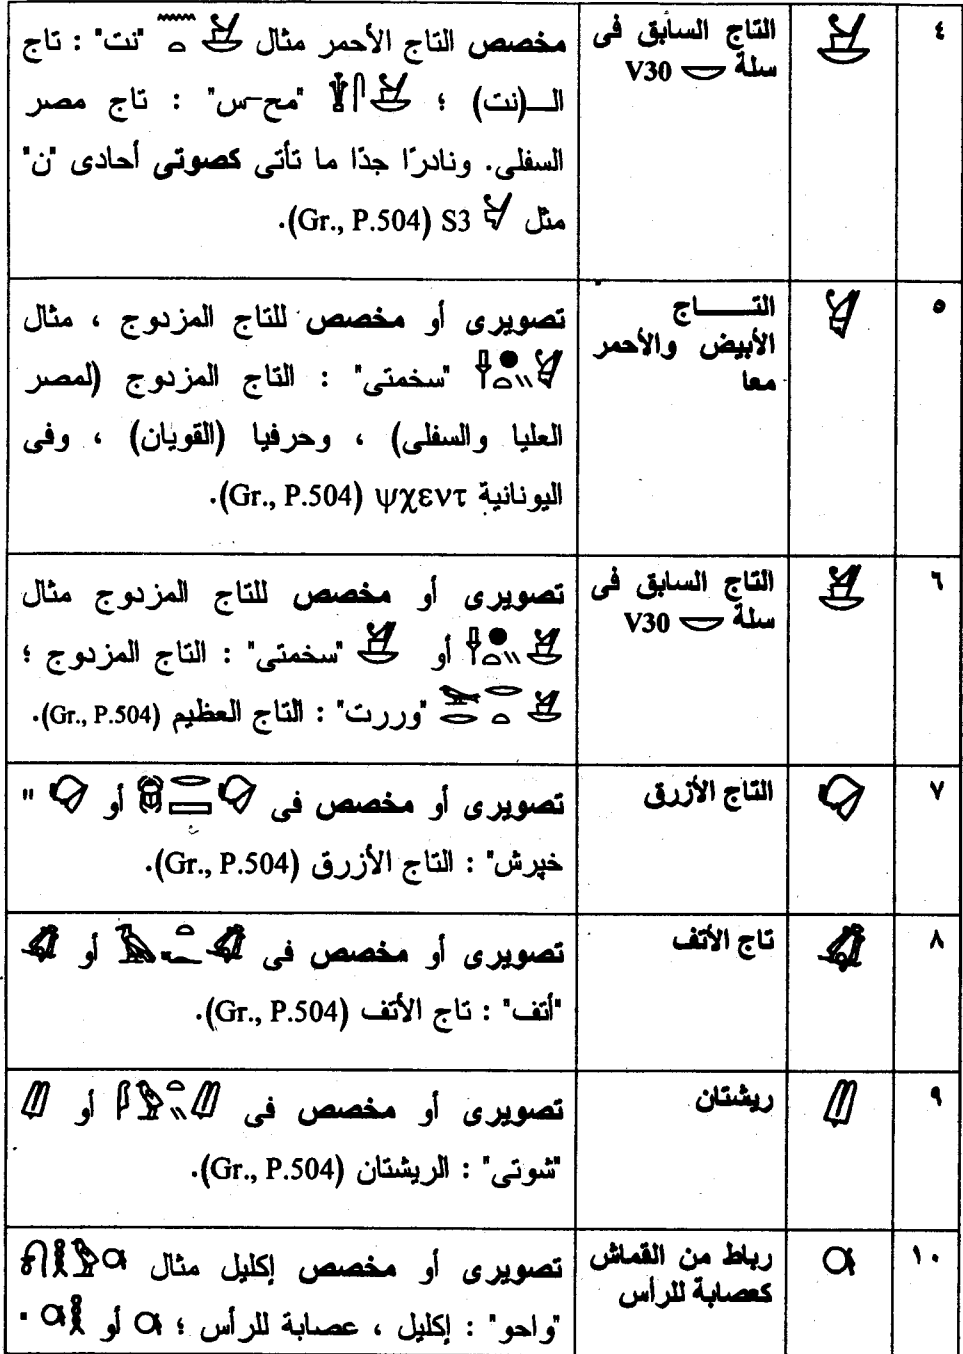 ٤
التاج السابق فى
سلة V30
مخصص التاج الأحمر مثال "نت" : تاج
الـــ(نت) ؛ "مح-س" : تاج مصر
السفلى. ونادرًا جدًا ما تأتى كصوتى أحادى "ن"
مثل S3 (Gr., P.504).
٥
التــــــاج
الأبيض والأحمر
معا
تصويرى أو مخصص للتاج المزدوج ، مثال
"سخمتى" : التاج المزدوج (لمصر
العليا والسفلى) ، وحرفيا (القويان) ، وفى
اليونانية ψχεντ (Gr., P.504).
٦
التاج السابق فى
سلة V30
تصويرى أو مخصص للتاج المزدوج مثال
أو "سخمتى" : التاج المزدوج ؛
"وررت" : التاج العظيم (Gr., P.504).
٧
التاج الأزرق
تصويرى أو مخصص فى أو "
خپرش" : التاج الأزرق (Gr., P.504).
٨
تاج الأتف
تصويرى أو مخصص فى أو
"أتف" : تاج الأتف (Gr., P.504).
٩
ريشتان
تصويرى أو مخصص فى أو
"شوتى" : الريشتان (Gr., P.504).
١٠
رباط من القماش
كعصابة للرأس
تصويرى أو مخصص إكليل مثال
"واحو" : إكليل ، عصابة للرأس ؛ أو .